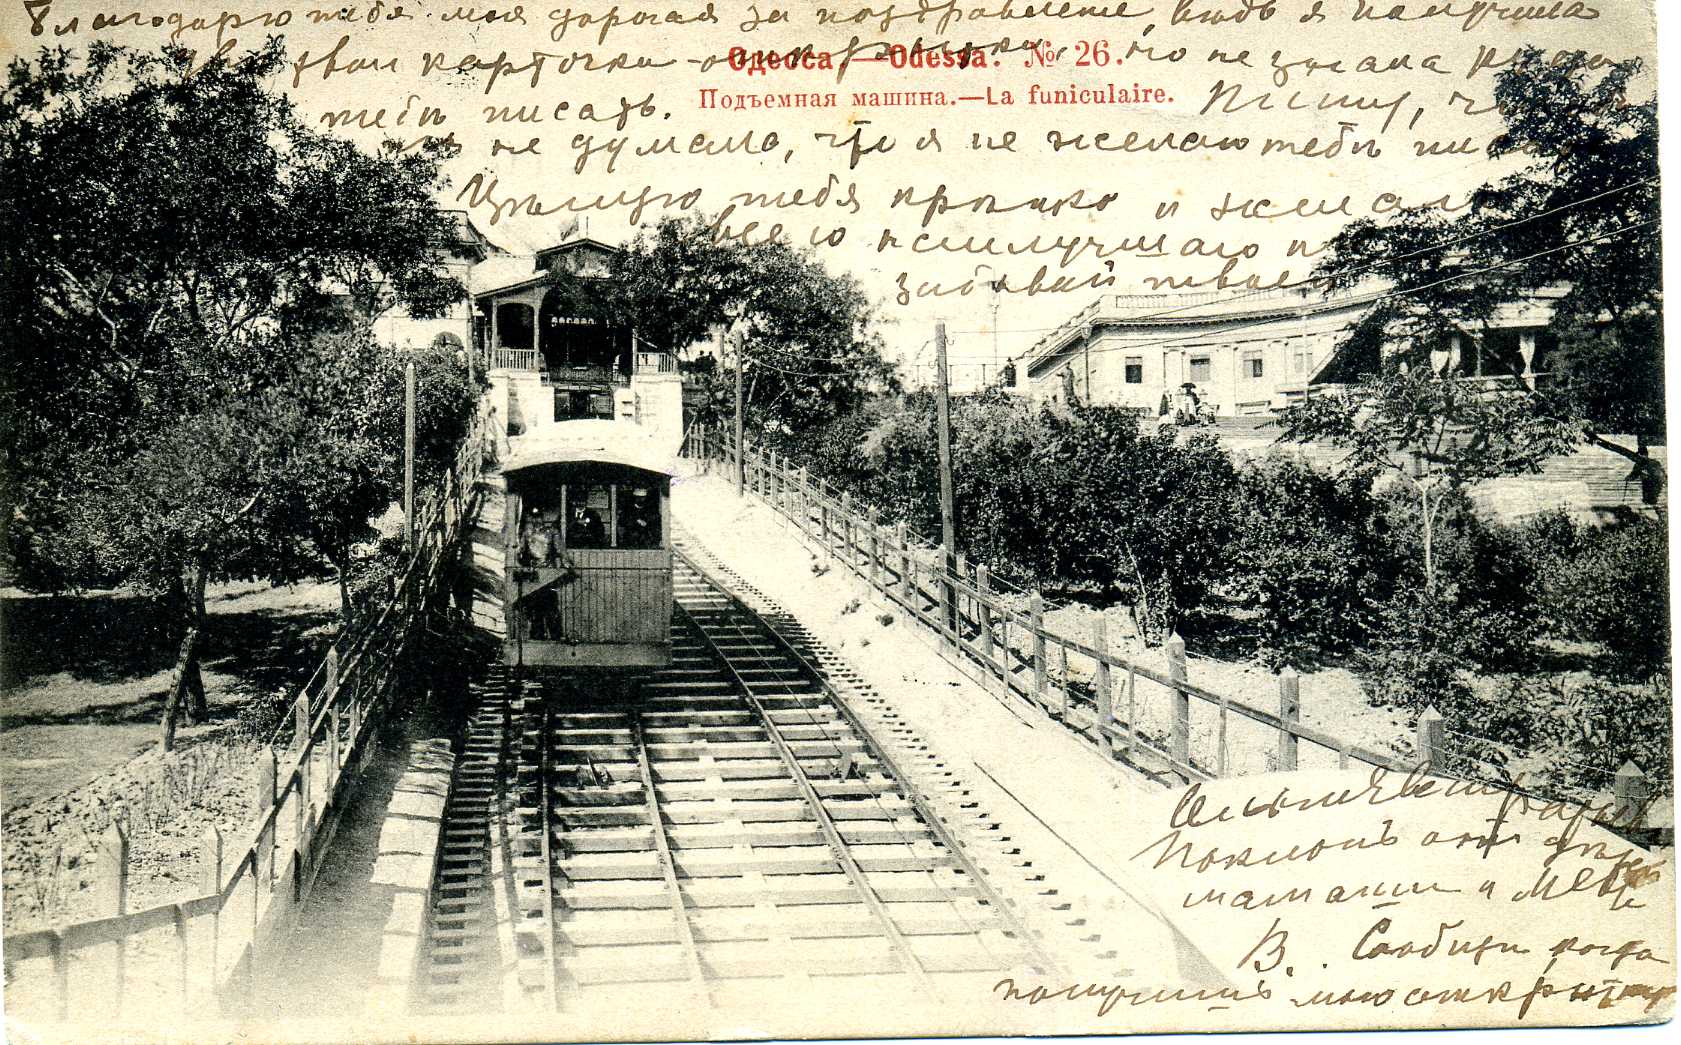 Благодарю тебя моя дорогая за поздравление, ведь я получила
две твои карточки открытки, но не знала куда
Одесса.—Odessa. № 26.
Подъемная машина.—La funiculaire.
тебѣ писать. Пишу, чтобъ
не думала, что я не желаю тебѣ писать
Цѣлую тебя крѣпко и желаю
всего наилучшаго не
забывай твоей
Поклонъ отъ
мамаши и
В. Сообщи когда
получишь мою открытку